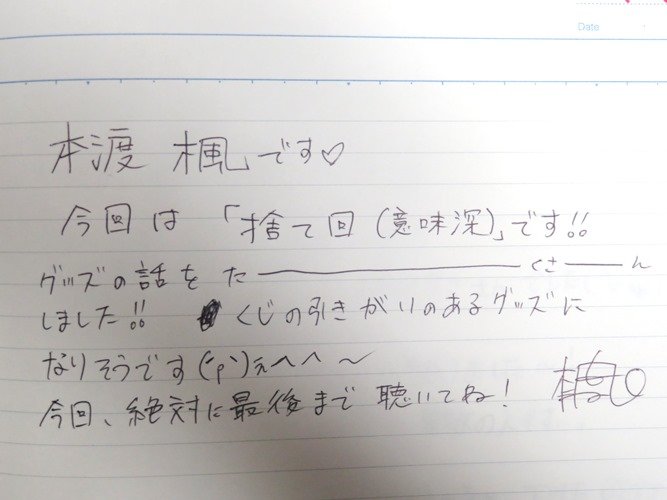 Date
本渡 楓です♡
今回は「捨て回(意味深)」です!!
グッズの話をた――――くさ――ん
しました!! くじの引きがいのあるグッズに
なりそうです('p`)えへへ〜
今回、絶対に最後まで聴いてね!
楓